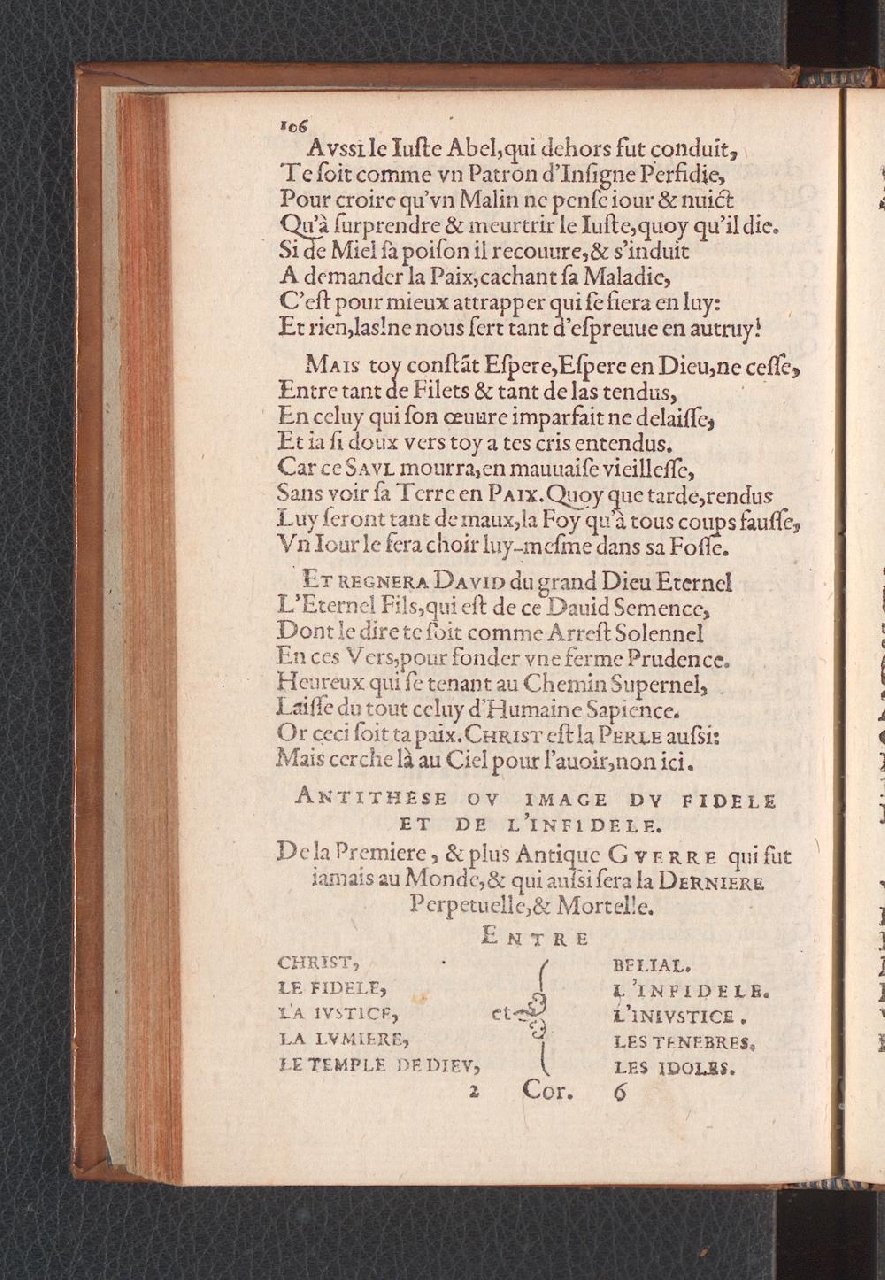 106
Avssi le Iuſte Abel, qui dehors fut conduit,
Te ſoit comme vn Patron d'Inſigne Perfidie,
Pour croire qu'vn Malin ne penſe iour & nuict
Qu'à ſurprendre & meurtrir le Iuſte, quoy qu'il die.
Si de Miel ſa poiſon il recouure, & s'induit
A demander la Paix, cachant ſa Maladie,
C'eſt pour mieux attrapper qui ſe fiera en luy:
Et rien, las! ne nous ſert tant d'eſpreuue en autruy!
MAIS toy conſtãt Eſpere, Eſpere en Dieu, ne ceſſe,
Entre tant de Filets & tant de las tendus,
En celuy qui ſon œuure imparfait ne delaiſſe,
Et ia ſi doux vers toy a tes cris entendus.
Car ce SAVL mourra, en mauuaiſe vieilleſſe,
Sans voir ſa Terre en PAIX. Quoy que tarde, rendus
Luy ſeront tant de maux, la Foy qu'à tous coups fauſſe,
Vn Iour le fera choir luy-meſme dans sa Foſſe.
ET REGNERA DAVID du grand Dieu Eternel
L'Eternel Fils, qui eſt de ce Dauid Semence,
Dont le dire te ſoit comme Arreſt Solennel
En ces Vers, pour fonder vne ferme Prudence.
Heureux qui ſe tenant au Chemin Supernel,
Laiſſe du tout celuy d'Humaine Sapience.
Or ceci ſoit ta paix. CHRIST eſt la PERLE auſsi:
Mais cerche là au Ciel pour l'auoir, non ici.
ANTITHESE OV IMAGE DV FIDELE
ET DE L'INFIDELE.
De la Premiere, & plus Antique GVERRE qui fut
iamais au Monde, & qui auſsi ſera la DERNIERE
Perpetuelle, & Mortelle.
ENTRE
CHRIST, BELIAL.
LE FIDELE, L'INFIDELE.
LA IVSTICE, et L'INIVSTICE.
LA LVMIERE, LES TENEBRES.
LE TEMPLE DE DIEV, LES IDOLES.
2 Cor. 6